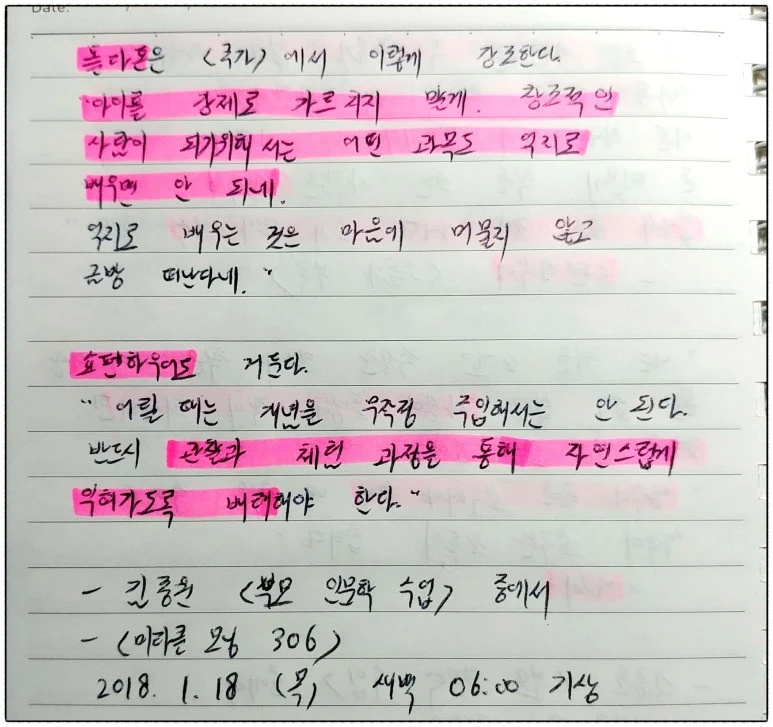 Date:
플라톤은 <국가>에서 이렇게 강조한다.
"아이를 강제로 가르치지 말게. 창조적인
사람이 되기위해서는 어떤 과목도 억지로
배우면 안 되네.
억지로 배우는 것은 마음에 머물지 않고
금방 떠난다네."
쇼펜하우어도 거든다.
"어릴 때는 개념을 무작정 주입해서는 안 된다.
반드시 관찰과 체험 과정을 통해 자연스럽게
익혀가도록 배려해야 한다."
- 김종원 <부모 인문학 수업> 중에서
- <미타른 모닝 306>
2018. 1. 18 (목) 새벽 06:00 기상